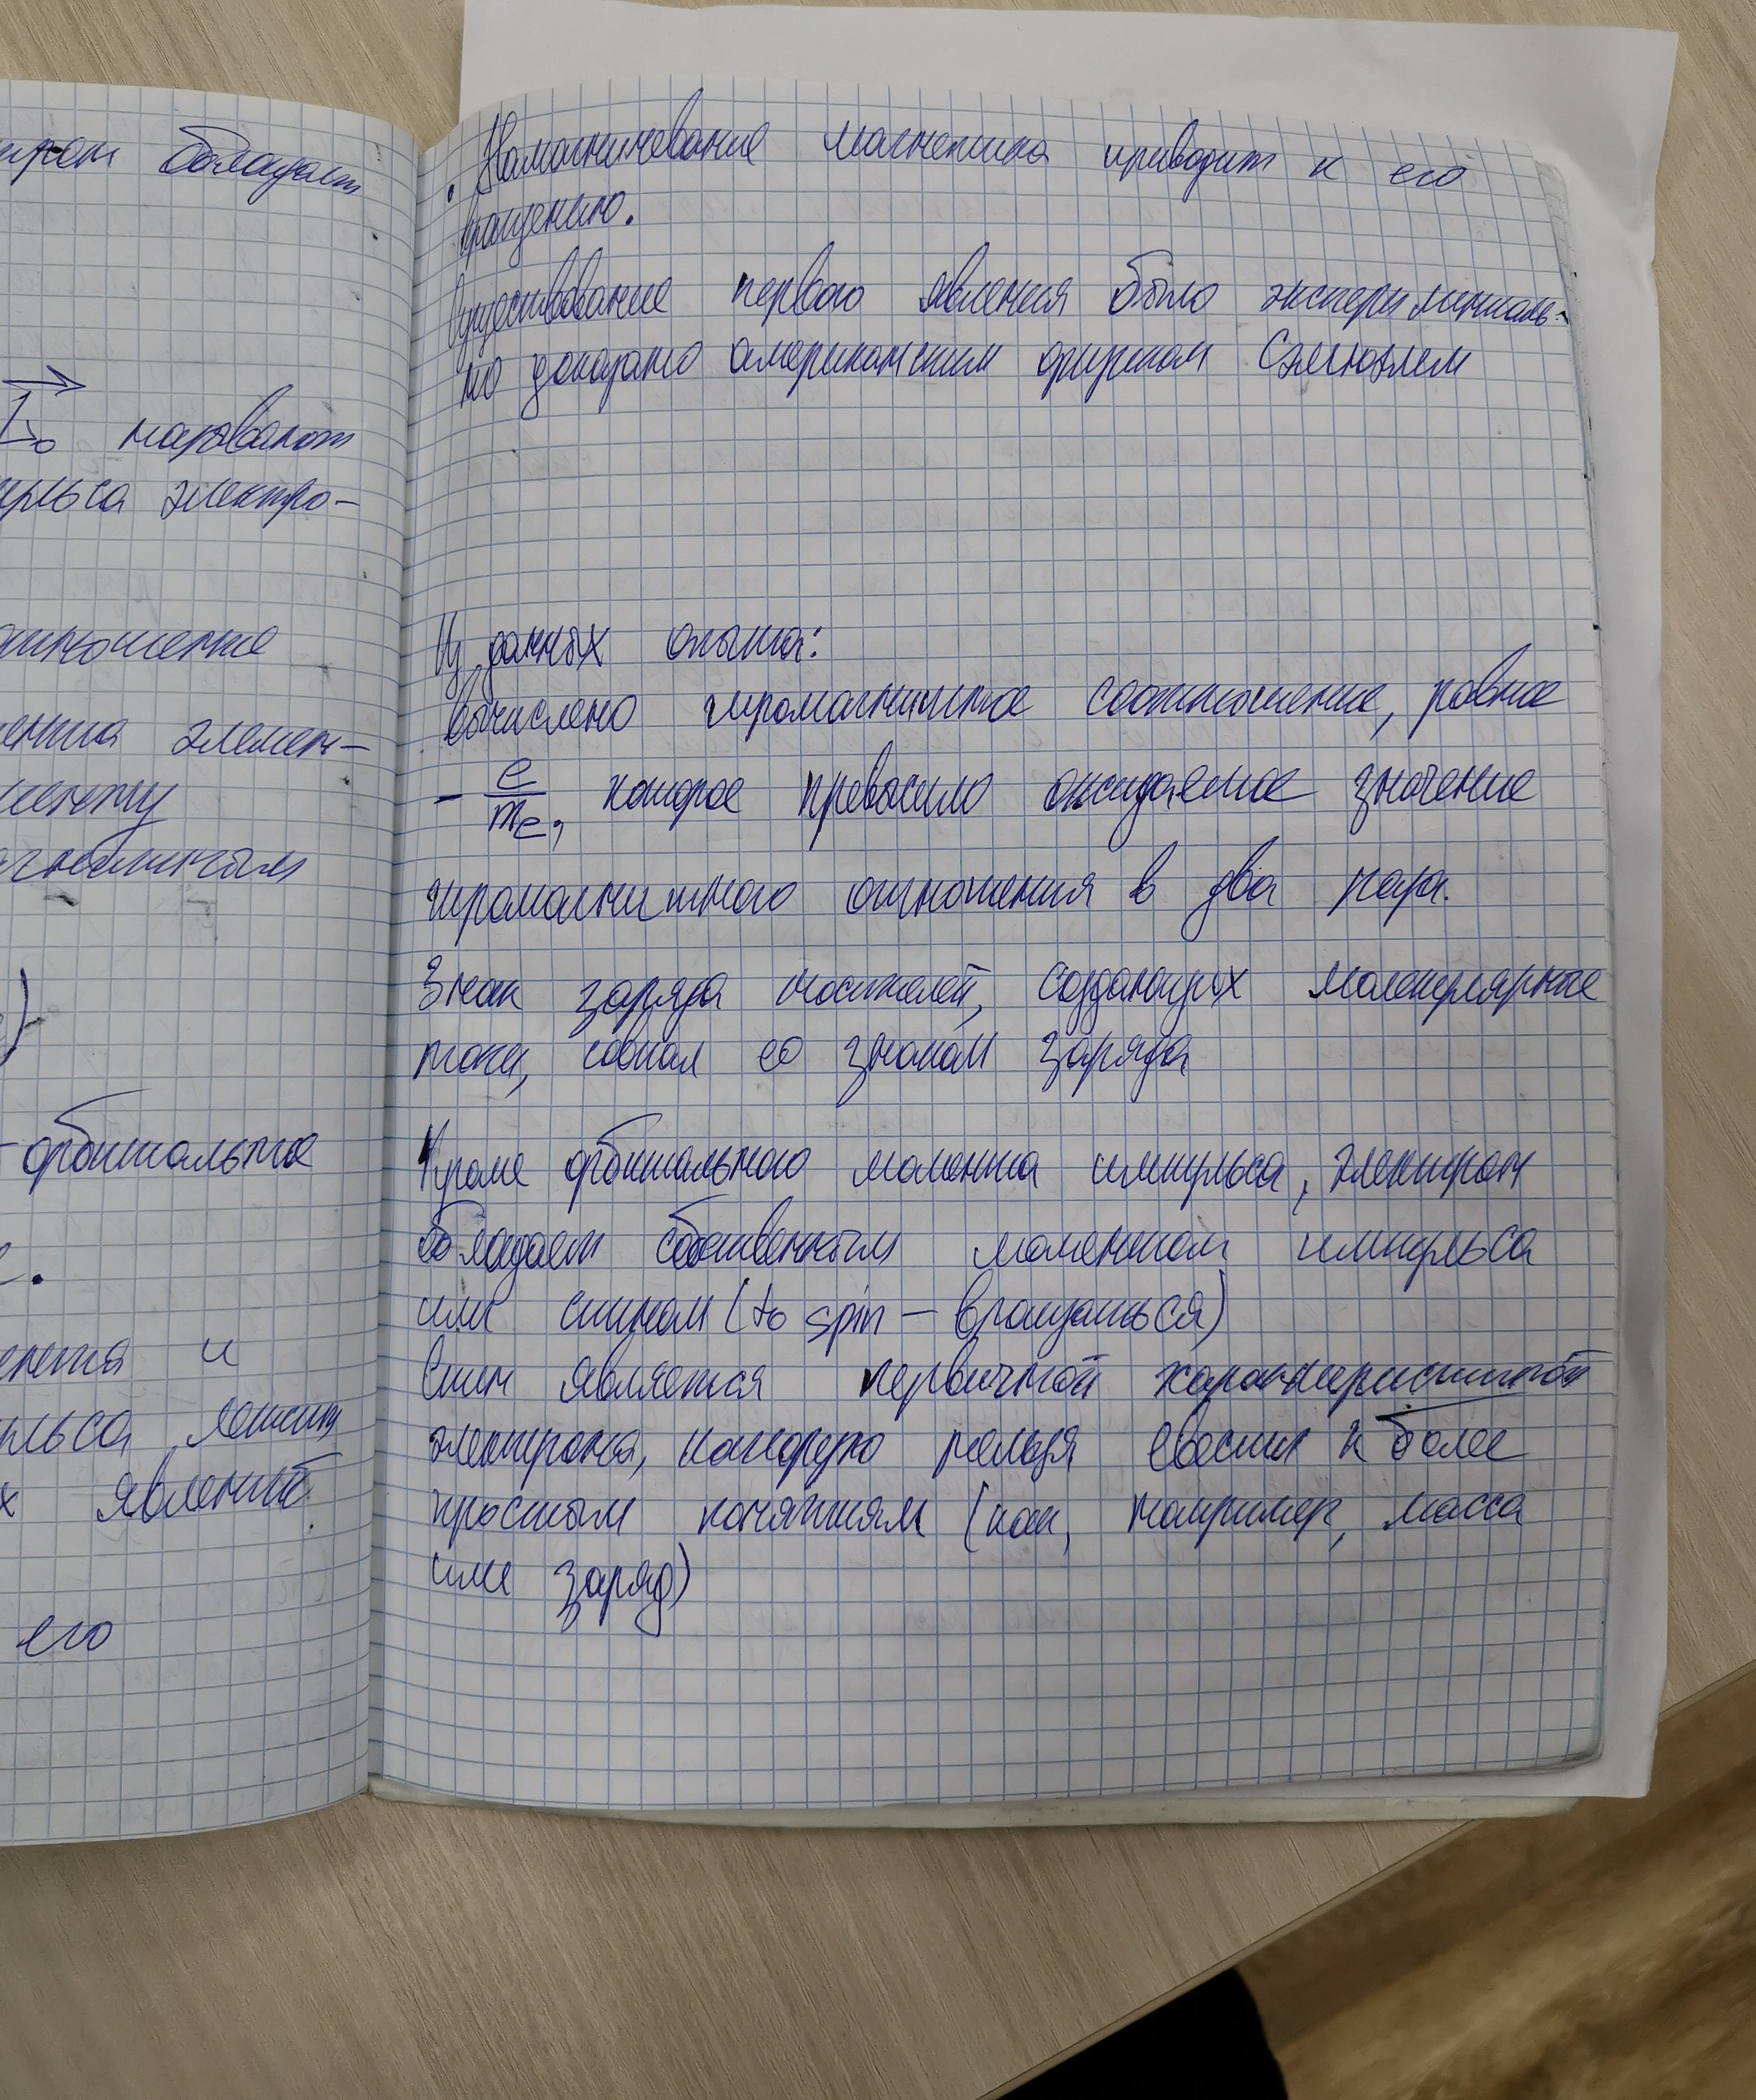 обладает
L₀ называют
электро-
отношение
элемен-
орбитальные
и
лежит
явлений
его
. Намагничевание магнетика приводит к его
вращению.
Существование первого явления было эксперименталь-
но доказано американским физиком Сэмюэлем
Из данных опыта:
вычислено гиромагнитное соотношение, равное
- e/mₑ, которое превысило ожидаемое значение
гиромагнитного отношения в два раза.
Знак заряда носителей, создающих молекулярные
токи, совпал со знаком заряда
Кроме орбитального момента импульса, электрон
обладает собственным моментом импульса
или спином (to spin - вращаться)
Спин является первичной характеристикой
электрона, которую нельзя свести к более
простым понятиям (как, например, масса
или заряд)